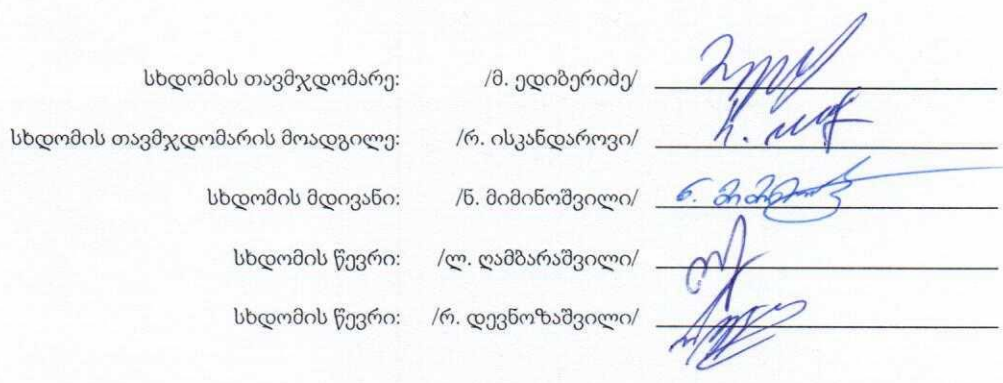 სხდომის თავმჯდომარე: /მ. ედიბერიძე/
სხდომის თავმჯდომარის მოადგილე: /რ. ისკანდაროვი/
სხდომის მდივანი: /ნ. მიმინოშვილი/
სხდომის წევრი: /ლ. ღამბარაშვილი/
სხდომის წევრი: /რ. დევნოზაშვილი/